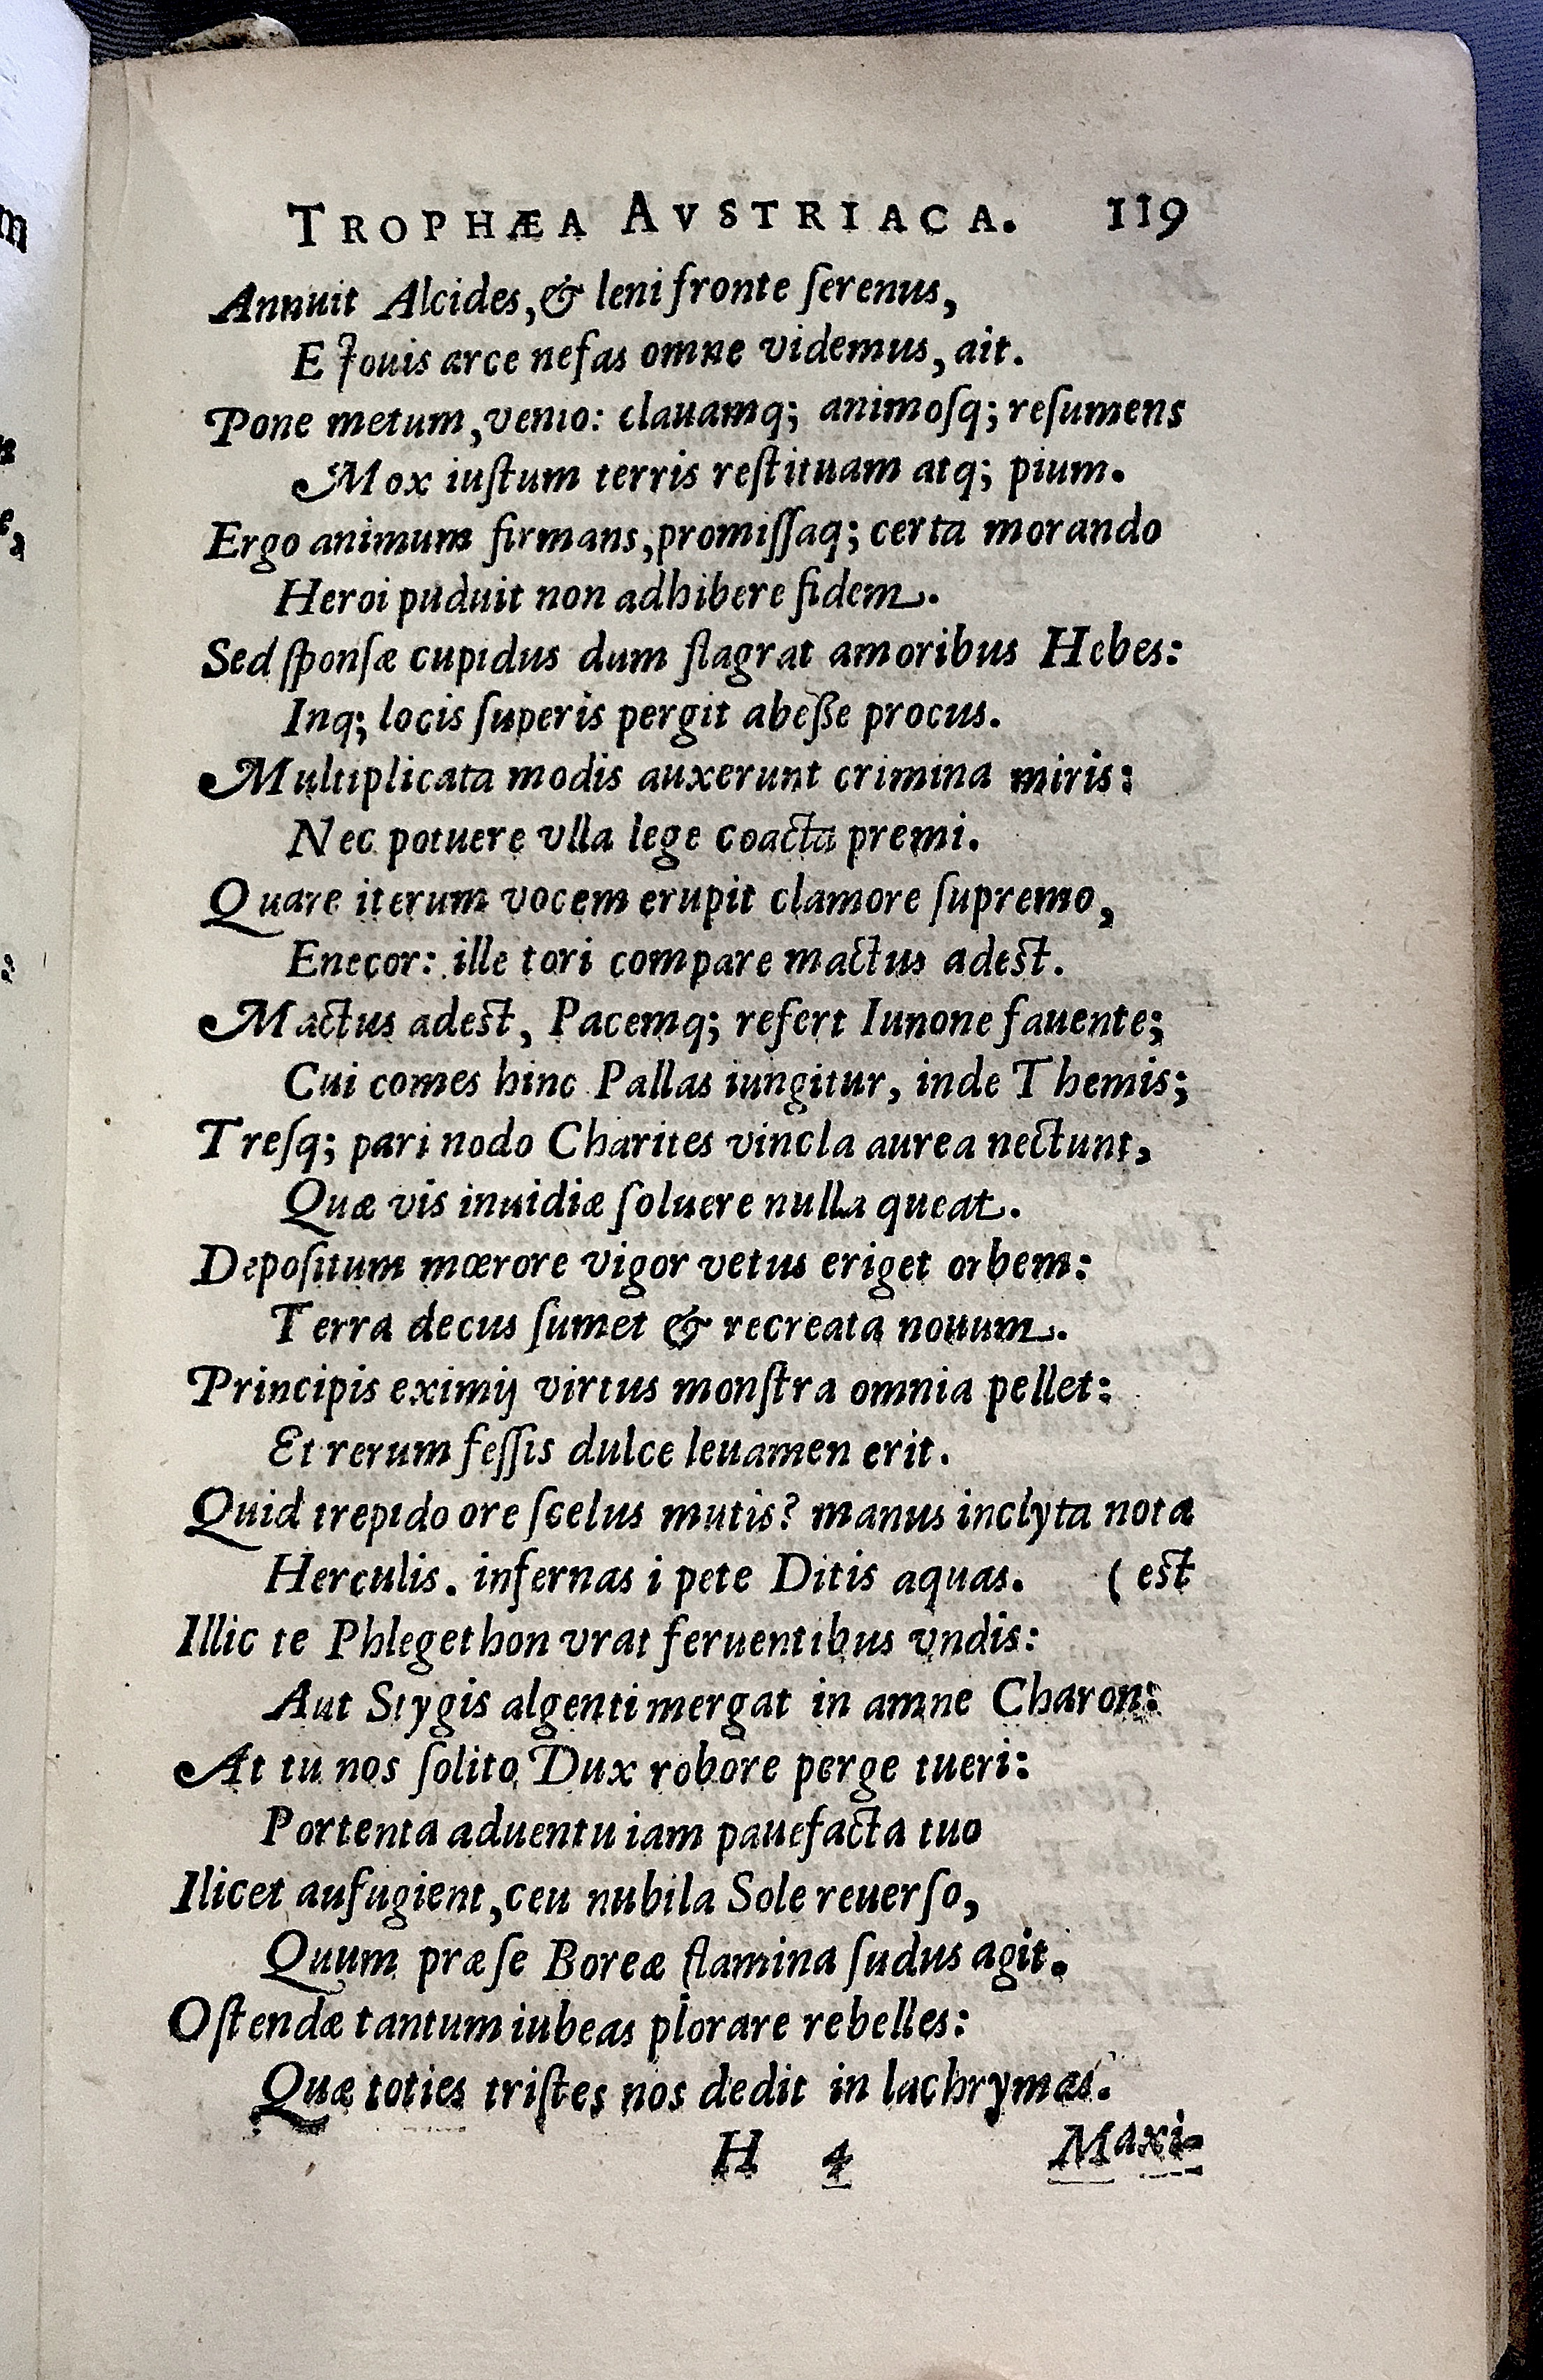 TROPHÆA AVSTRIACA. 119
Annuit Alcides, & leni fronte ſerenus,
E Jouis arce nefas omne videmus, ait.
Pone metum, venio: clauamq; animoſq; reſumens
Mox iuſtum terris reſtituam atq; pium.
Ergo animum firmans, promiſſaq; certa morando
Heroi puduit non adhibere fidem.
Sed ſponſæ cupidus dum flagrat amoribus Hebes:
Inq; locis ſuperis pergit abeſſe procus.
Multiplicata modis auxerunt crimina miris:
Nec potuere vlla lege coacta premi.
Quare iterum vocem erupit clamore ſupremo,
Enecor: ille tori compare mactus adest.
Mactus adest, Pacemq; refert Iunone fauente;
Cui comes hinc Pallas iungitur, inde Themis;
Treſq; pari nodo Charites vincla aurea nectunt,
Quæ vis inuidiæ ſoluere nulla queat.
Depoſitum mœrore vigor vetus eriget orbem:
Terra decus ſumet & recreata nouum.
Principis eximij virtus monſtra omnia pellet:
Et rerum feſſis dulce leuamen erit.
Quid trepido ore ſcelus mutis? manus inclyta nota
Herculis. infernas i pete Ditis aquas. (est
Illic te Phlegethon vrat feruentibus vndis:
Aut Stygis algenti mergat in amne Charon:
At tu nos ſolito Dux robore perge tueri:
Portenta aduentu iam pauefacta tuo
Ilicet aufugient, ceu nubila Sole reuerſo,
Quum præ ſe Boreæ flamina ſudus agit.
Oſtendæ tantum iubeas plorare rebelles:
Quæ toties triſtes nos dedit in lachrymas.
H 4 Maxi-